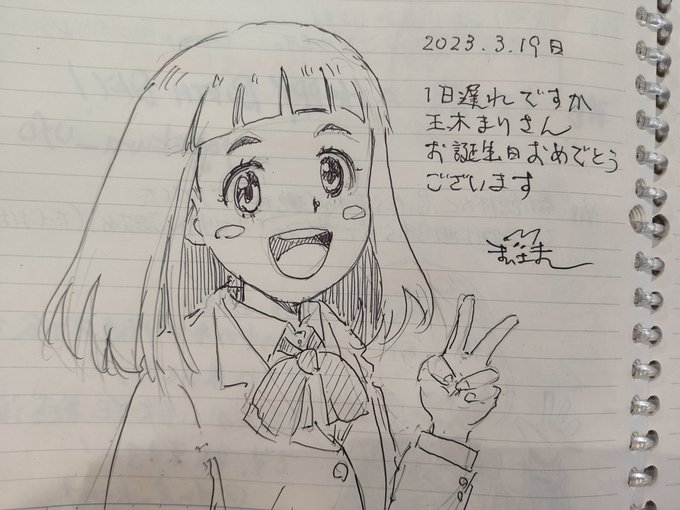 2023.3.19日
1日遅れですが
玉木まりさん
お誕生日おめでとう
ございます